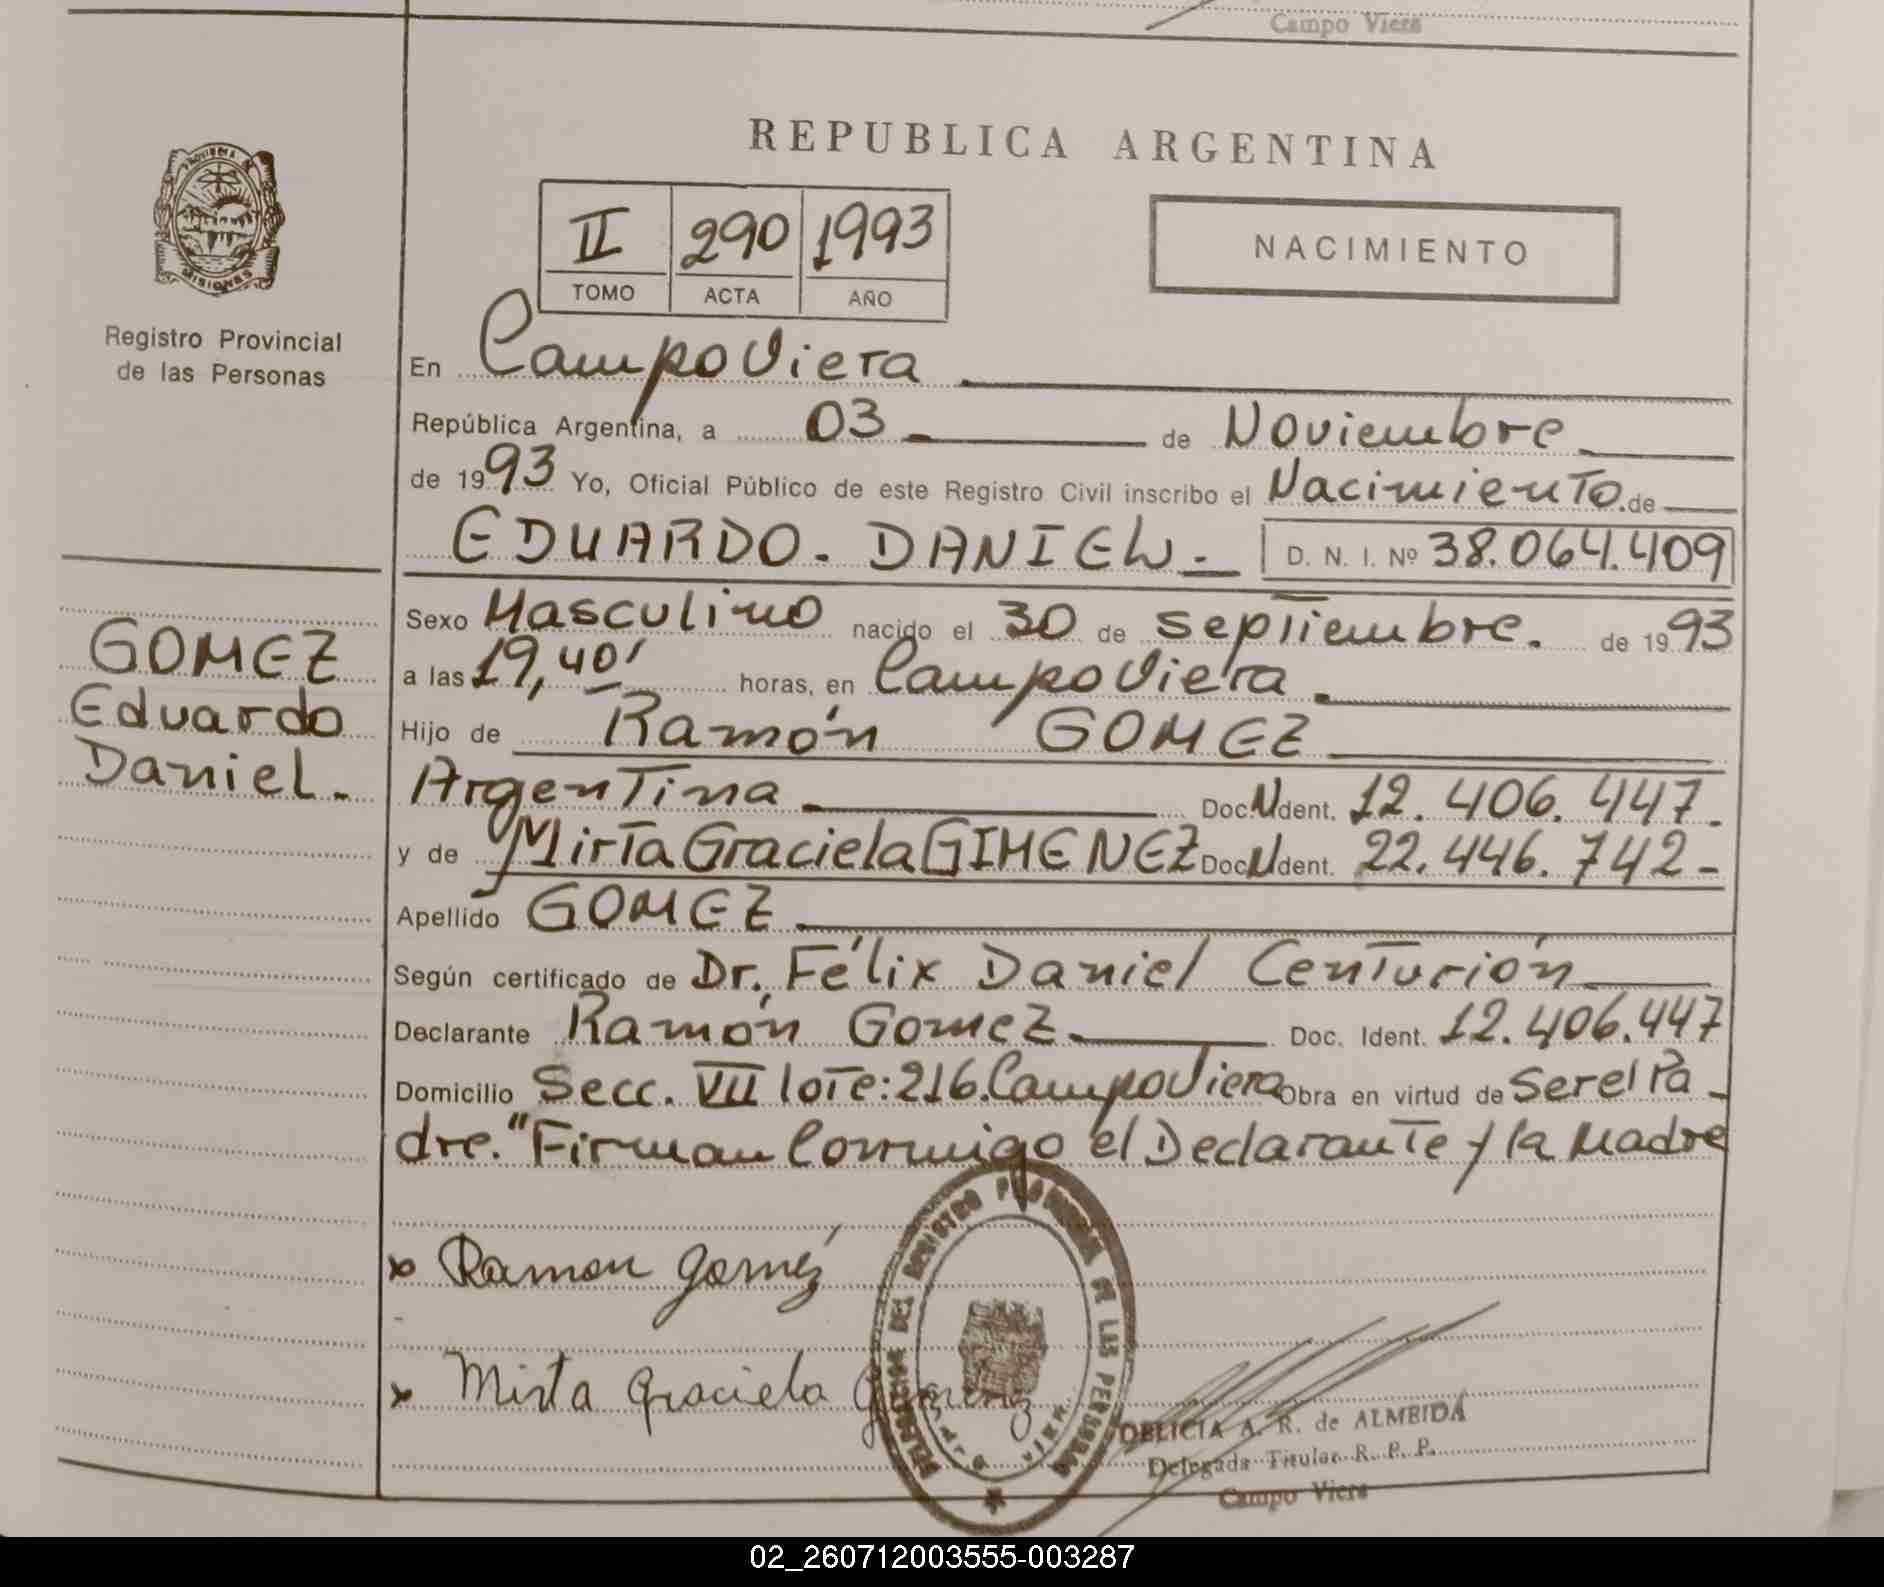 Campo Viera
REPUBLICA ARGENTINA
PROVINCIA DE
MISIONES
II 290 1993
TOMO ACTA AÑO
NACIMIENTO
Registro Provincial
de las Personas
En Campo Viera
República Argentina, a 03 de Noviembre
de 1993 Yo, Oficial Público de este Registro Civil inscribo el Nacimiento de
EDUARDO. DANIEL. D. N. I. Nº 38.064.409
GOMEZ
Eduardo
Daniel.
Sexo Masculino nacido el 30 de septiembre. de 1993
a las 19,40' horas, en Campo Viera
Hijo de Ramón GOMEZ
Argentina Doc. Ident. 12.406.447.
y de Mirta Graciela GIMENEZ Doc. Ident. 22.446.742-
Apellido GOMEZ
Según certificado de Dr. Félix Daniel Centurión
Declarante Ramón Gomez Doc. Ident. 12.406.447
Domicilio Secc. VII lote: 216. Campo Viera Obra en virtud de Ser el Pa-
dre." Firman Conmigo el Declarante y la Madre
x Ramon Goméz
x Mirta Graciela Gimenez
DELEGACION DEL REGISTRO PROVINCIAL DE LAS PERSONAS
DELICIA A. R. de ALMEIDA
Delegada Titular R. P. P.
Campo Viera
02_260712003555-003287